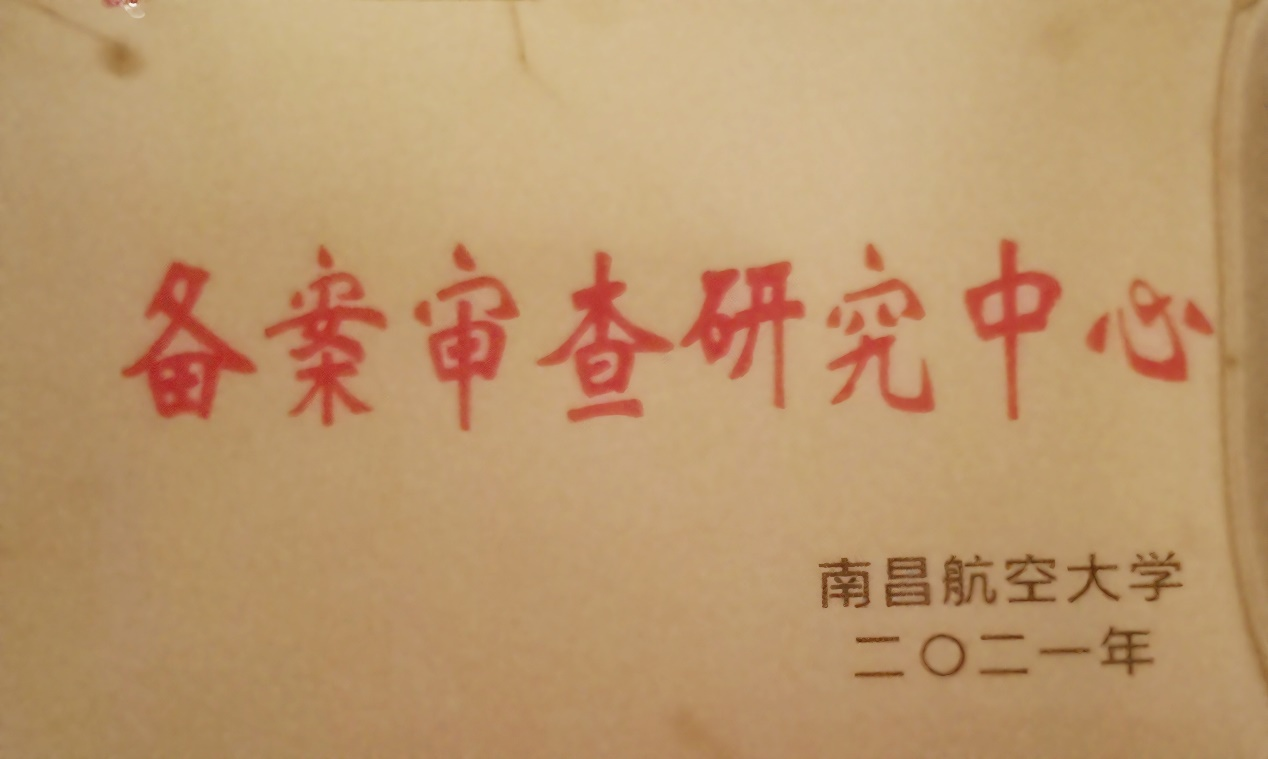 备案审查研究中心
南昌航空大学
二〇二一年